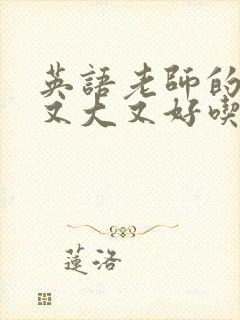 英語老師的
又大又好喫
蓮洛